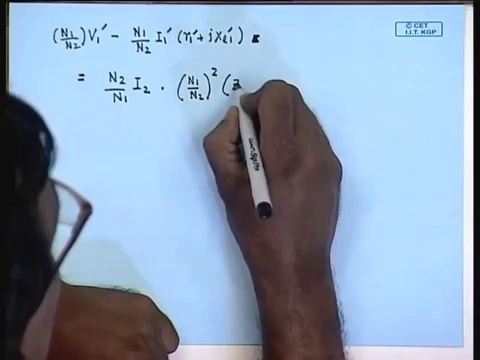 © CET
I.I.T. KGP
(N1/N2) V1′ − N1/N2 I1′ (r1′ + jxl1′)
= N2/N1 I2 · (N1/N2)² (